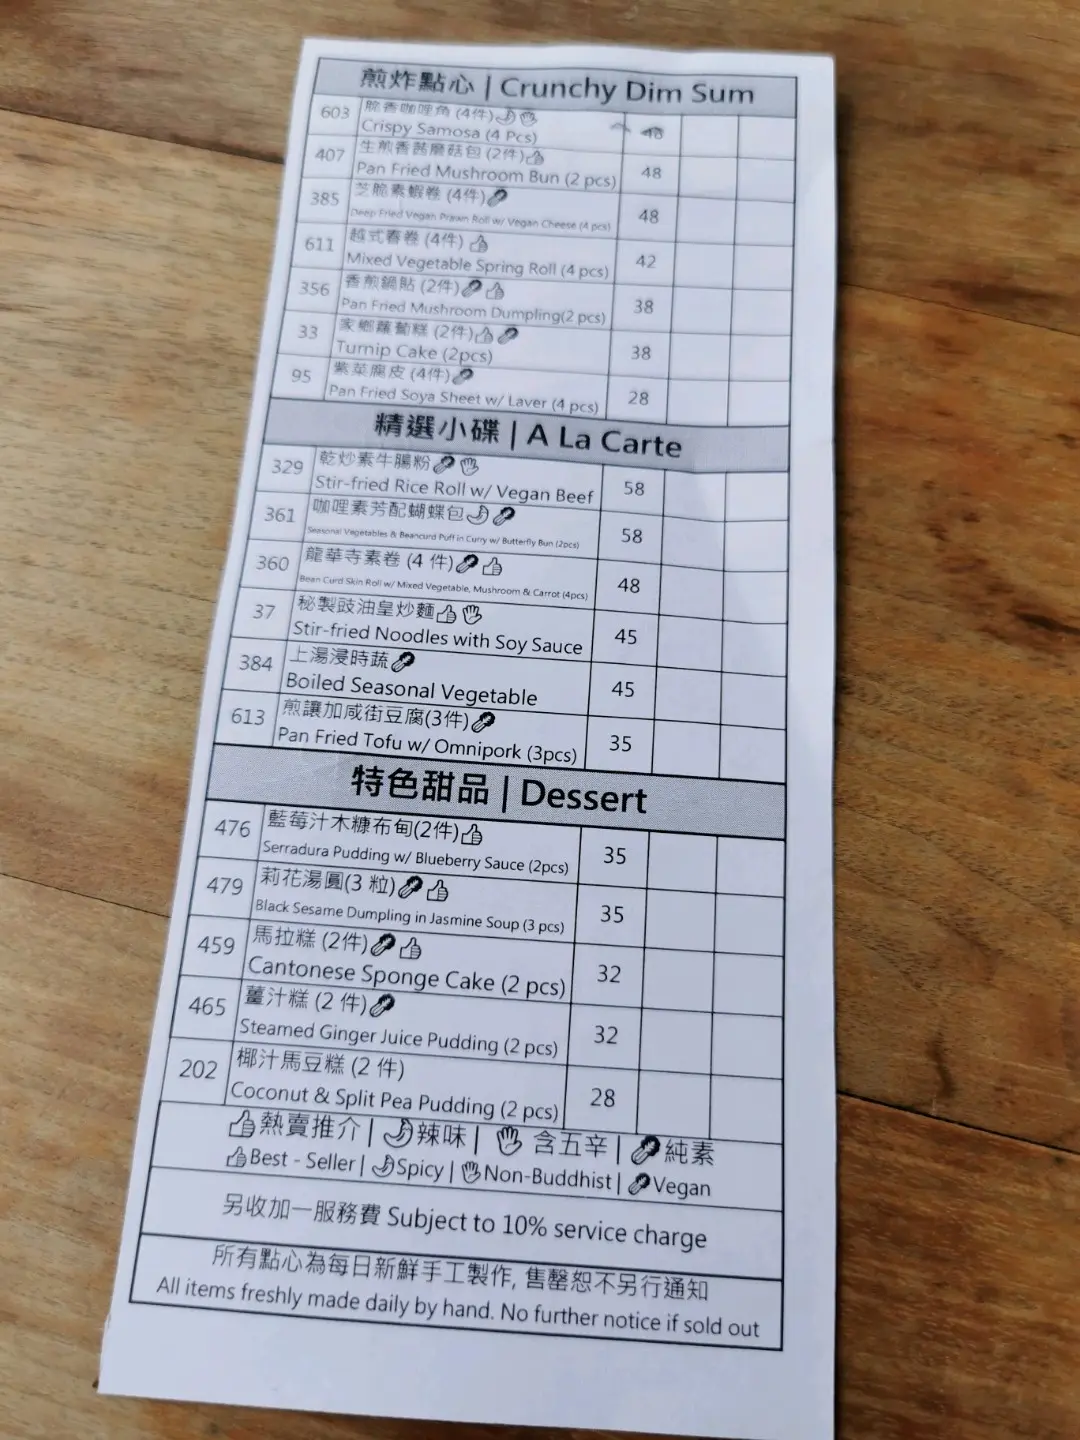 煎炸點心 | Crunchy Dim Sum
603 脆香咖哩角 (4件)
Crispy Samosa (4 Pcs) 48
407 生煎香茜蘑菇包 (2件)
Pan Fried Mushroom Bun (2 pcs) 48
385 芝脆素蝦卷 (4件)
Deep Fried Vegan Prawn Roll w/ Vegan Cheese (4 pcs) 48
611 越式春卷 (4件)
Mixed Vegetable Spring Roll (4 pcs) 42
356 香煎鍋貼 (2件)
Pan Fried Mushroom Dumpling(2 pcs) 38
33 家鄉蘿蔔糕 (2件)
Turnip Cake (2pcs) 38
95 紫菜腐皮 (4件)
Pan Fried Soya Sheet w/ Laver (4 pcs) 28
精選小碟 | A La Carte
329 乾炒素牛腸粉
Stir-fried Rice Roll w/ Vegan Beef 58
361 咖哩素芳配蝴蝶包
Seasonal Vegetables & Beancurd Puff in Curry w/ Butterfly Bun (2pcs) 58
360 龍華寺素卷 (4 件)
Bean Curd Skin Roll w/ Mixed Vegetable, Mushroom & Carrot (4pcs) 48
37 秘製豉油皇炒麵
Stir-fried Noodles with Soy Sauce 45
384 上湯浸時蔬
Boiled Seasonal Vegetable 45
613 煎讓加咸街豆腐(3件)
Pan Fried Tofu w/ Omnipork (3pcs) 35
特色甜品 | Dessert
476 藍莓汁木糠布甸(2件)
Serradura Pudding w/ Blueberry Sauce (2pcs) 35
479 莉花湯圓(3 粒)
Black Sesame Dumpling in Jasmine Soup (3 pcs) 35
459 馬拉糕 (2件)
Cantonese Sponge Cake (2 pcs) 32
465 薑汁糕 (2 件)
Steamed Ginger Juice Pudding (2 pcs) 32
202 椰汁馬豆糕 (2 件)
Coconut & Split Pea Pudding (2 pcs) 28
熱賣推介 | 辣味 | 含五辛 | 純素
Best - Seller | Spicy | Non-Buddhist | Vegan
另收加一服務費 Subject to 10% service charge
所有點心為每日新鮮手工製作, 售罄恕不另行通知
All items freshly made daily by hand. No further notice if sold out